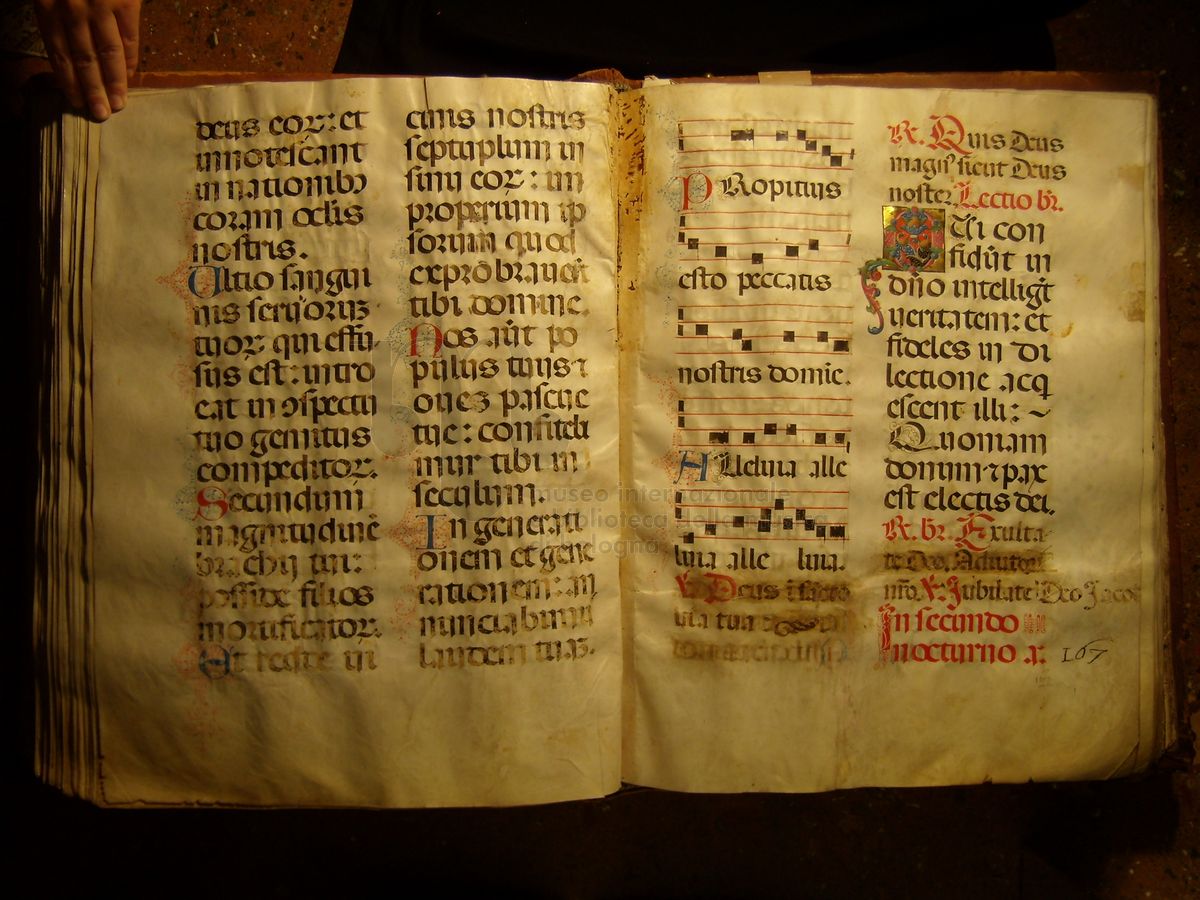 deus eoꝝ: et
innotescant
in nationibꝫ
coram oclis
nostris.
Ultio sangui
nis seruoruꝫ
tuoꝝ qui effu
sus est: intro
eat in ↄspectu
tuo gemitus
compeditoꝝ.
Secundum
magnitudinē
brachij tui:
posside filios
mortificatoꝝ.
Et redde in
cinis nostris
septuplum in
sinu eoꝝ: im
properium ip
sorum quod
exprobrauerūt
tibi domine.
Nos aūt po
pulus tuus ⁊
oues pascue
tue: confitebi
mur tibi in
seculum.
In generati
onem et gene
rationem: an
nunciabimus
laudem tuā.
PRopitius
esto peccatis
nostris domīe.
Alleluia alle
luia alle luia.
℣. Deus ī sācto
uia tua
℟. Quis Deus
magnꝰ sicut Deus
noster. Lectio br.
Qui con
fidūt in
dn̄o intelligūt
ueritatem: et
fideles in di
lectione acq
escent illi: ~
Quoniam
donum ⁊ pax
est electis dei.
℟. br. Exulta
te Deo. Adiutori
nr̄o. ℣. Jubilate Deo Jacob
In secundo
nocturno a. 167
museo internazionale
biblioteca della musica
bologna